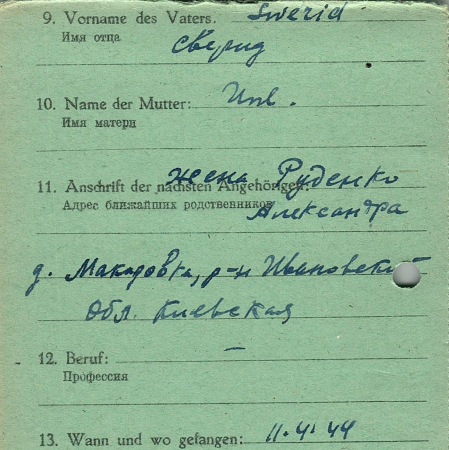 9. Vorname des Vaters. Swerid
Имя отца
Сверид
10. Name der Mutter: Unb.
Имя матери
жена Руденко
11. Anschrift der nächsten Angehörigen:
Адрес ближайших родственников Александра
д. Макаровка, р-н Ивановский
Обл. Киевская
12. Beruf: –
Профессия
13. Wann und wo gefangen: